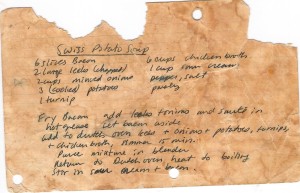 Swiss Potato Soup
6 slices Bacon 6 cups chicken broth
2 large leeks (chopped) 1 cup sour cream
2 cups minced onions pepper, salt
3 (cooked) potatoes parsley
1 turnip
Fry Bacon add leeks onions and sauté in
hot grease. Set bacon aside
Add to dutch oven leeks + onions + potatoes, turnips,
+ chicken broth, simmer 15 min.
Puree mixture in blender
Return to Dutch oven, heat to boiling
Stir in sour cream + bacon.